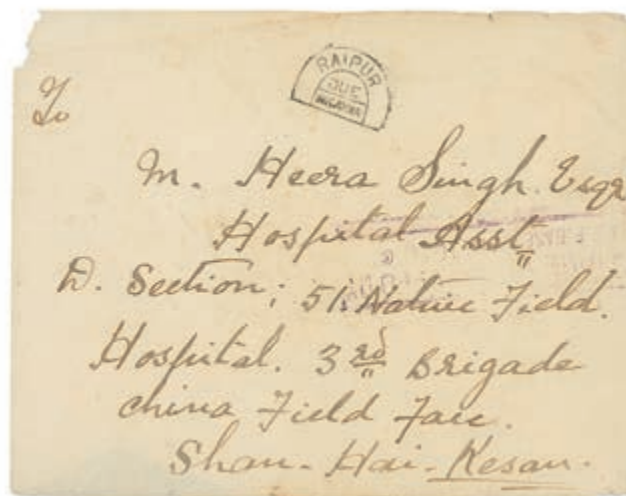 RAIPUR
DUE
To
M. Heera Singh Esqr
Hospital Asst
D. Section; 51. Native Field.
Hospital. 3rd Brigade
China Field Forc.
Shan-Hai-Kesan.